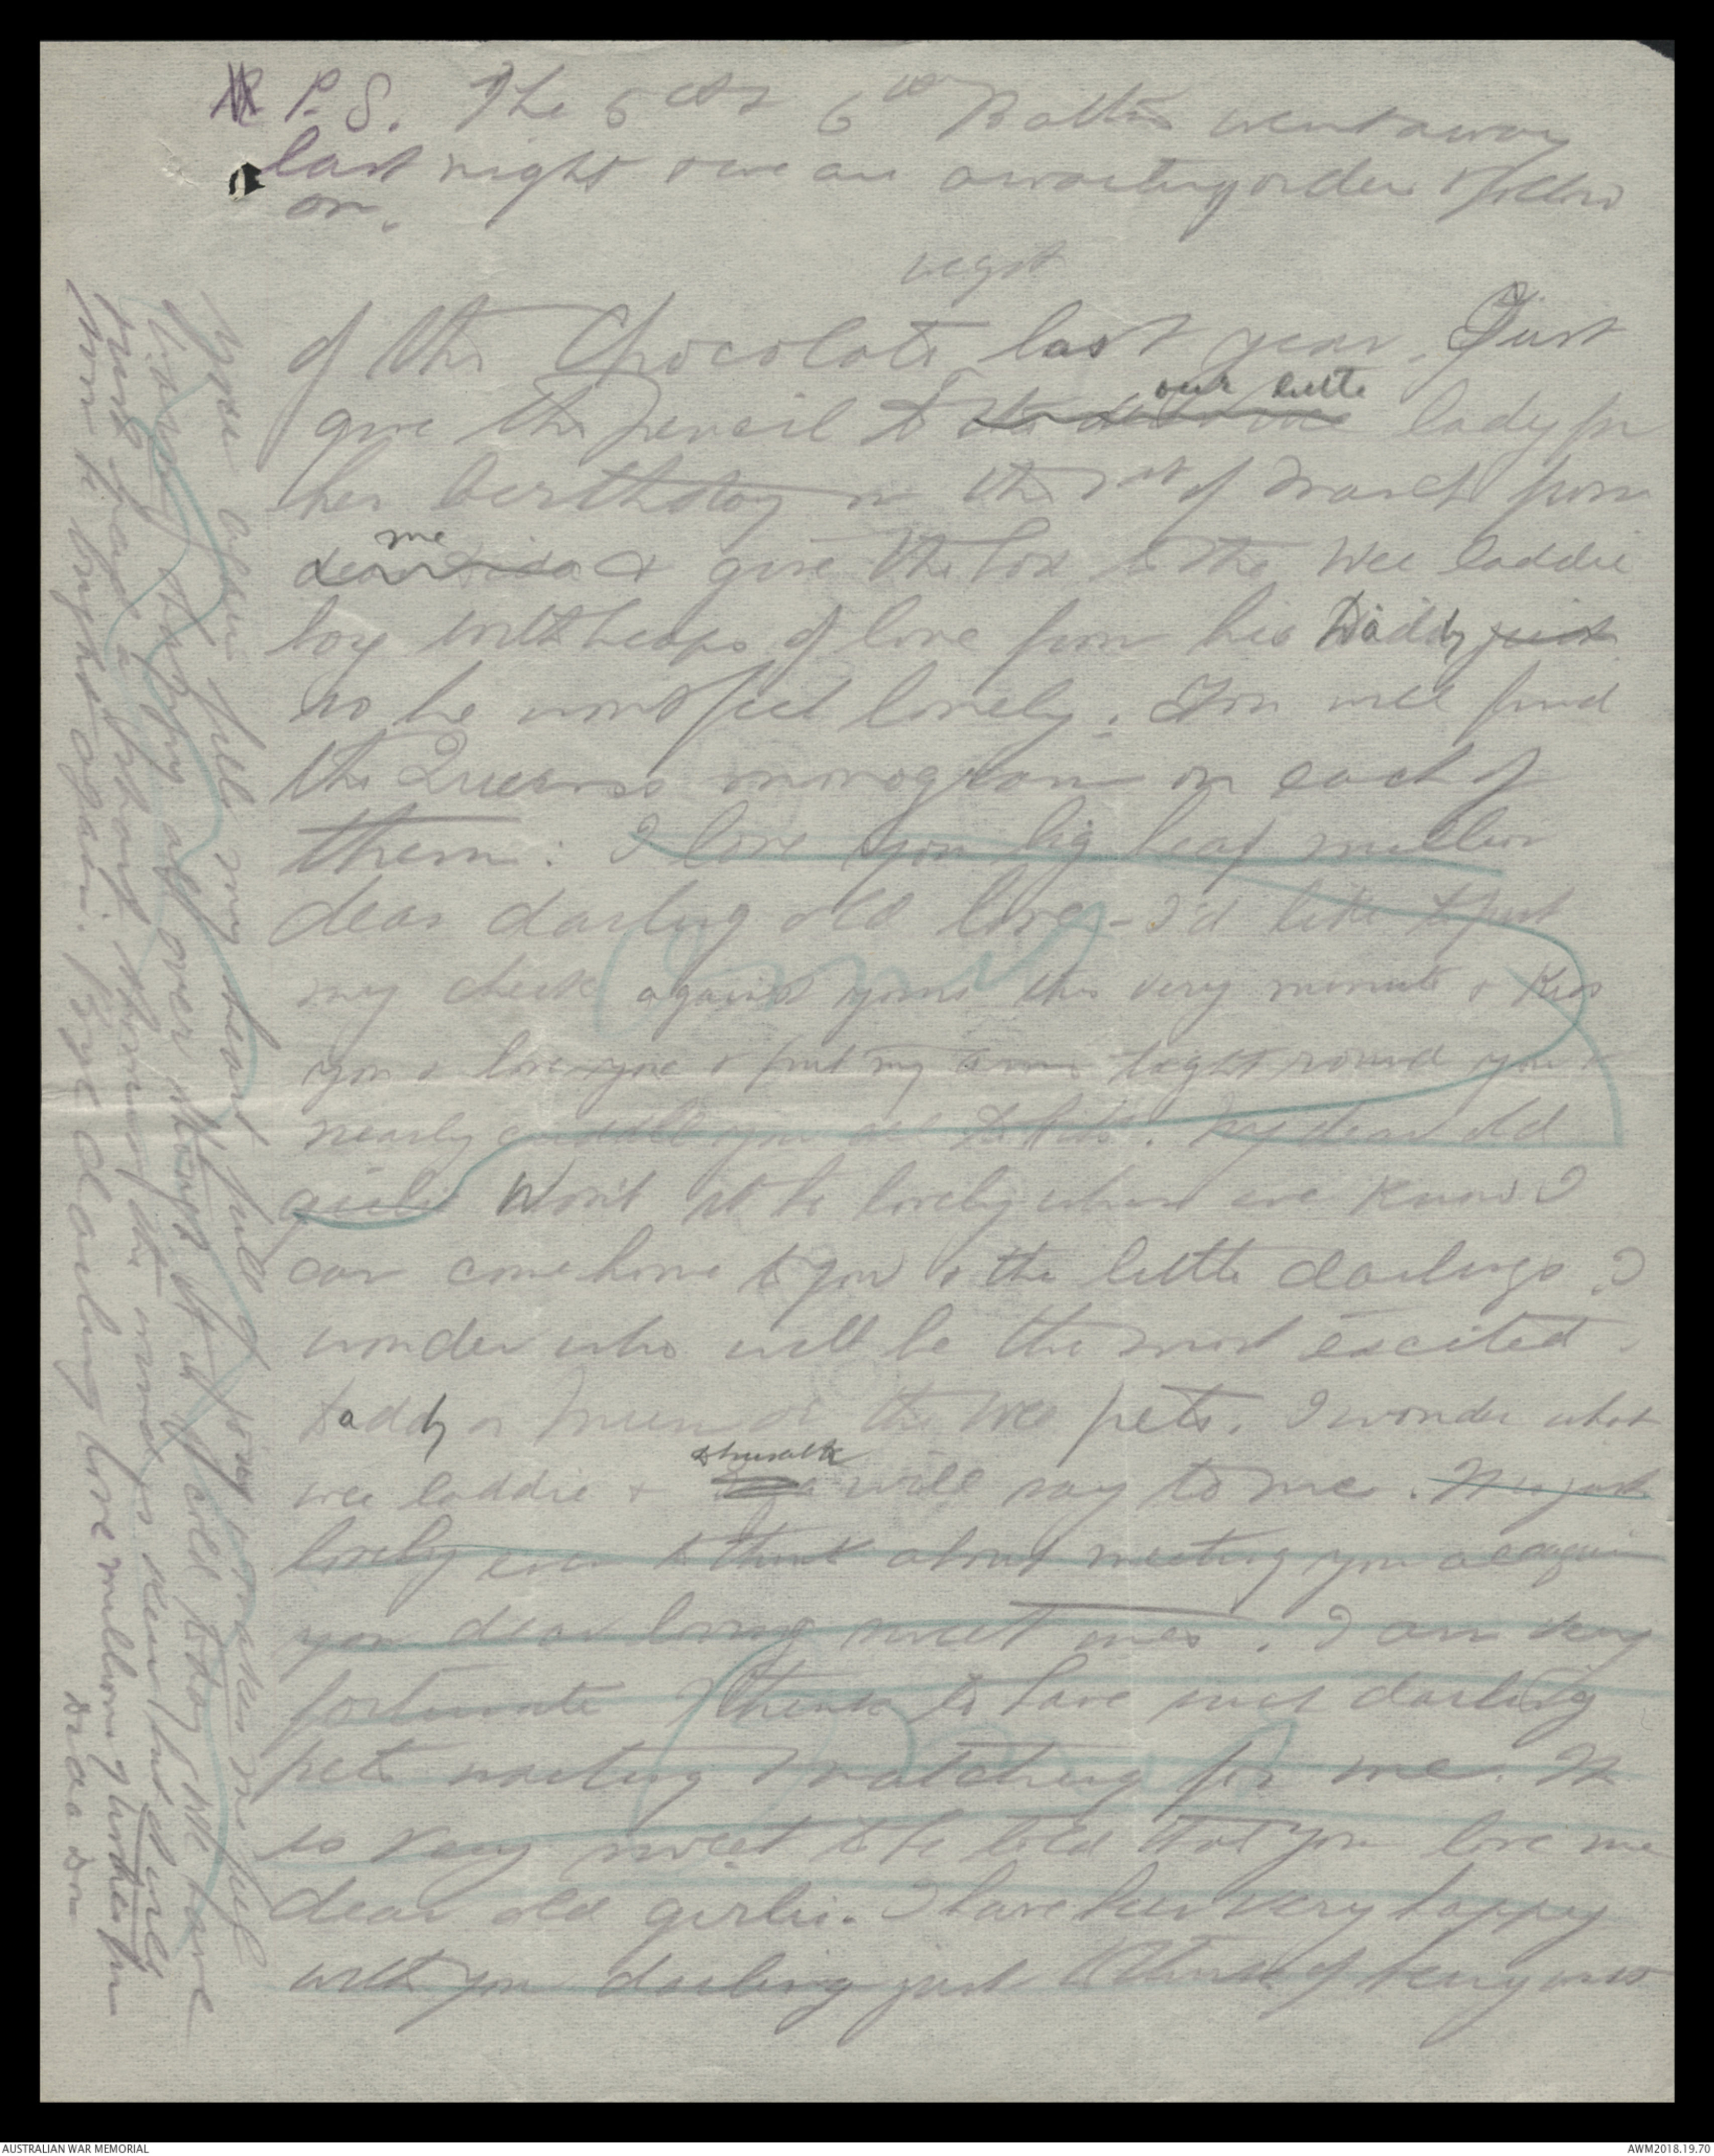 P.S. The 5th & 6th Battns went away
last night & we are awaiting orders to follow
on.
of the Chocolate last year. Just
our little
give the pencil to lady for
her birthday on the 1st of March from
me
dear Dida & give the box to the wee laddie
boy with heaps of love from his Daddy just
so he wont feel lonely. You will find
the Queens monogram on each of
them: I love you big heap million
dear darling old love - I'd like to put
my cheek against yours this very minute & kiss
you & love you & put my arms tight round you &
nearly cuddle you all to bits. My dear old
girlie Won't it be lovely when we know I
can come home to you & the little darlings. I
wonder who will be the most excited
Daddy or Mum or the wee pets. I wonder what
wee laddie & will say to me. It is just
lovely even to think about meeting you all again
you dear loving sweet ones. I am very
fortunate I think to have such darling
pets waiting & watching for me. It
is very sweet to be told that you love me
dear old girlie. I have been very happy
with you darling just to think of being
your letters fill my heart full of joy makes me feel
happy all over It is cold today & we have
just had a short in the
now is bright again. Bye bye darling love millions & kisses from
Dida Don
AUSTRALIAN WAR MEMORIAL
AWM2018.19.70